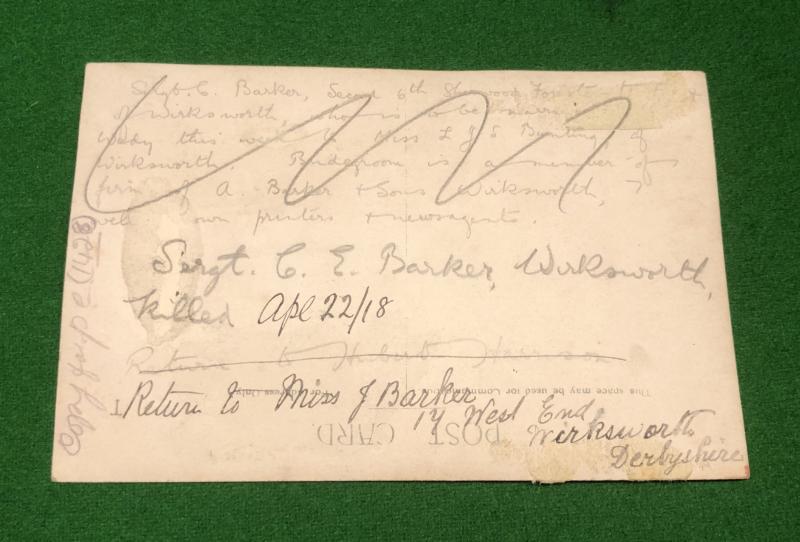 Sergt. C. Barker, Second 6th Sherwood Forest
of Wirksworth, who is to be
this week to Miss L J S Bunting, of
Wirksworth. Bridegroom is a member of
firm of A. Barker & Sons Wirksworth,
well own printers & newsagents.
Sergt. C. E. Barker, Wirksworth,
Killed Apl 22/18
Return to Hubert Harrison
This space may be used for Commun
Address Only.
Return to Miss J Barker
14 West End
POST CARD.
Wirksworth
Derbyshire